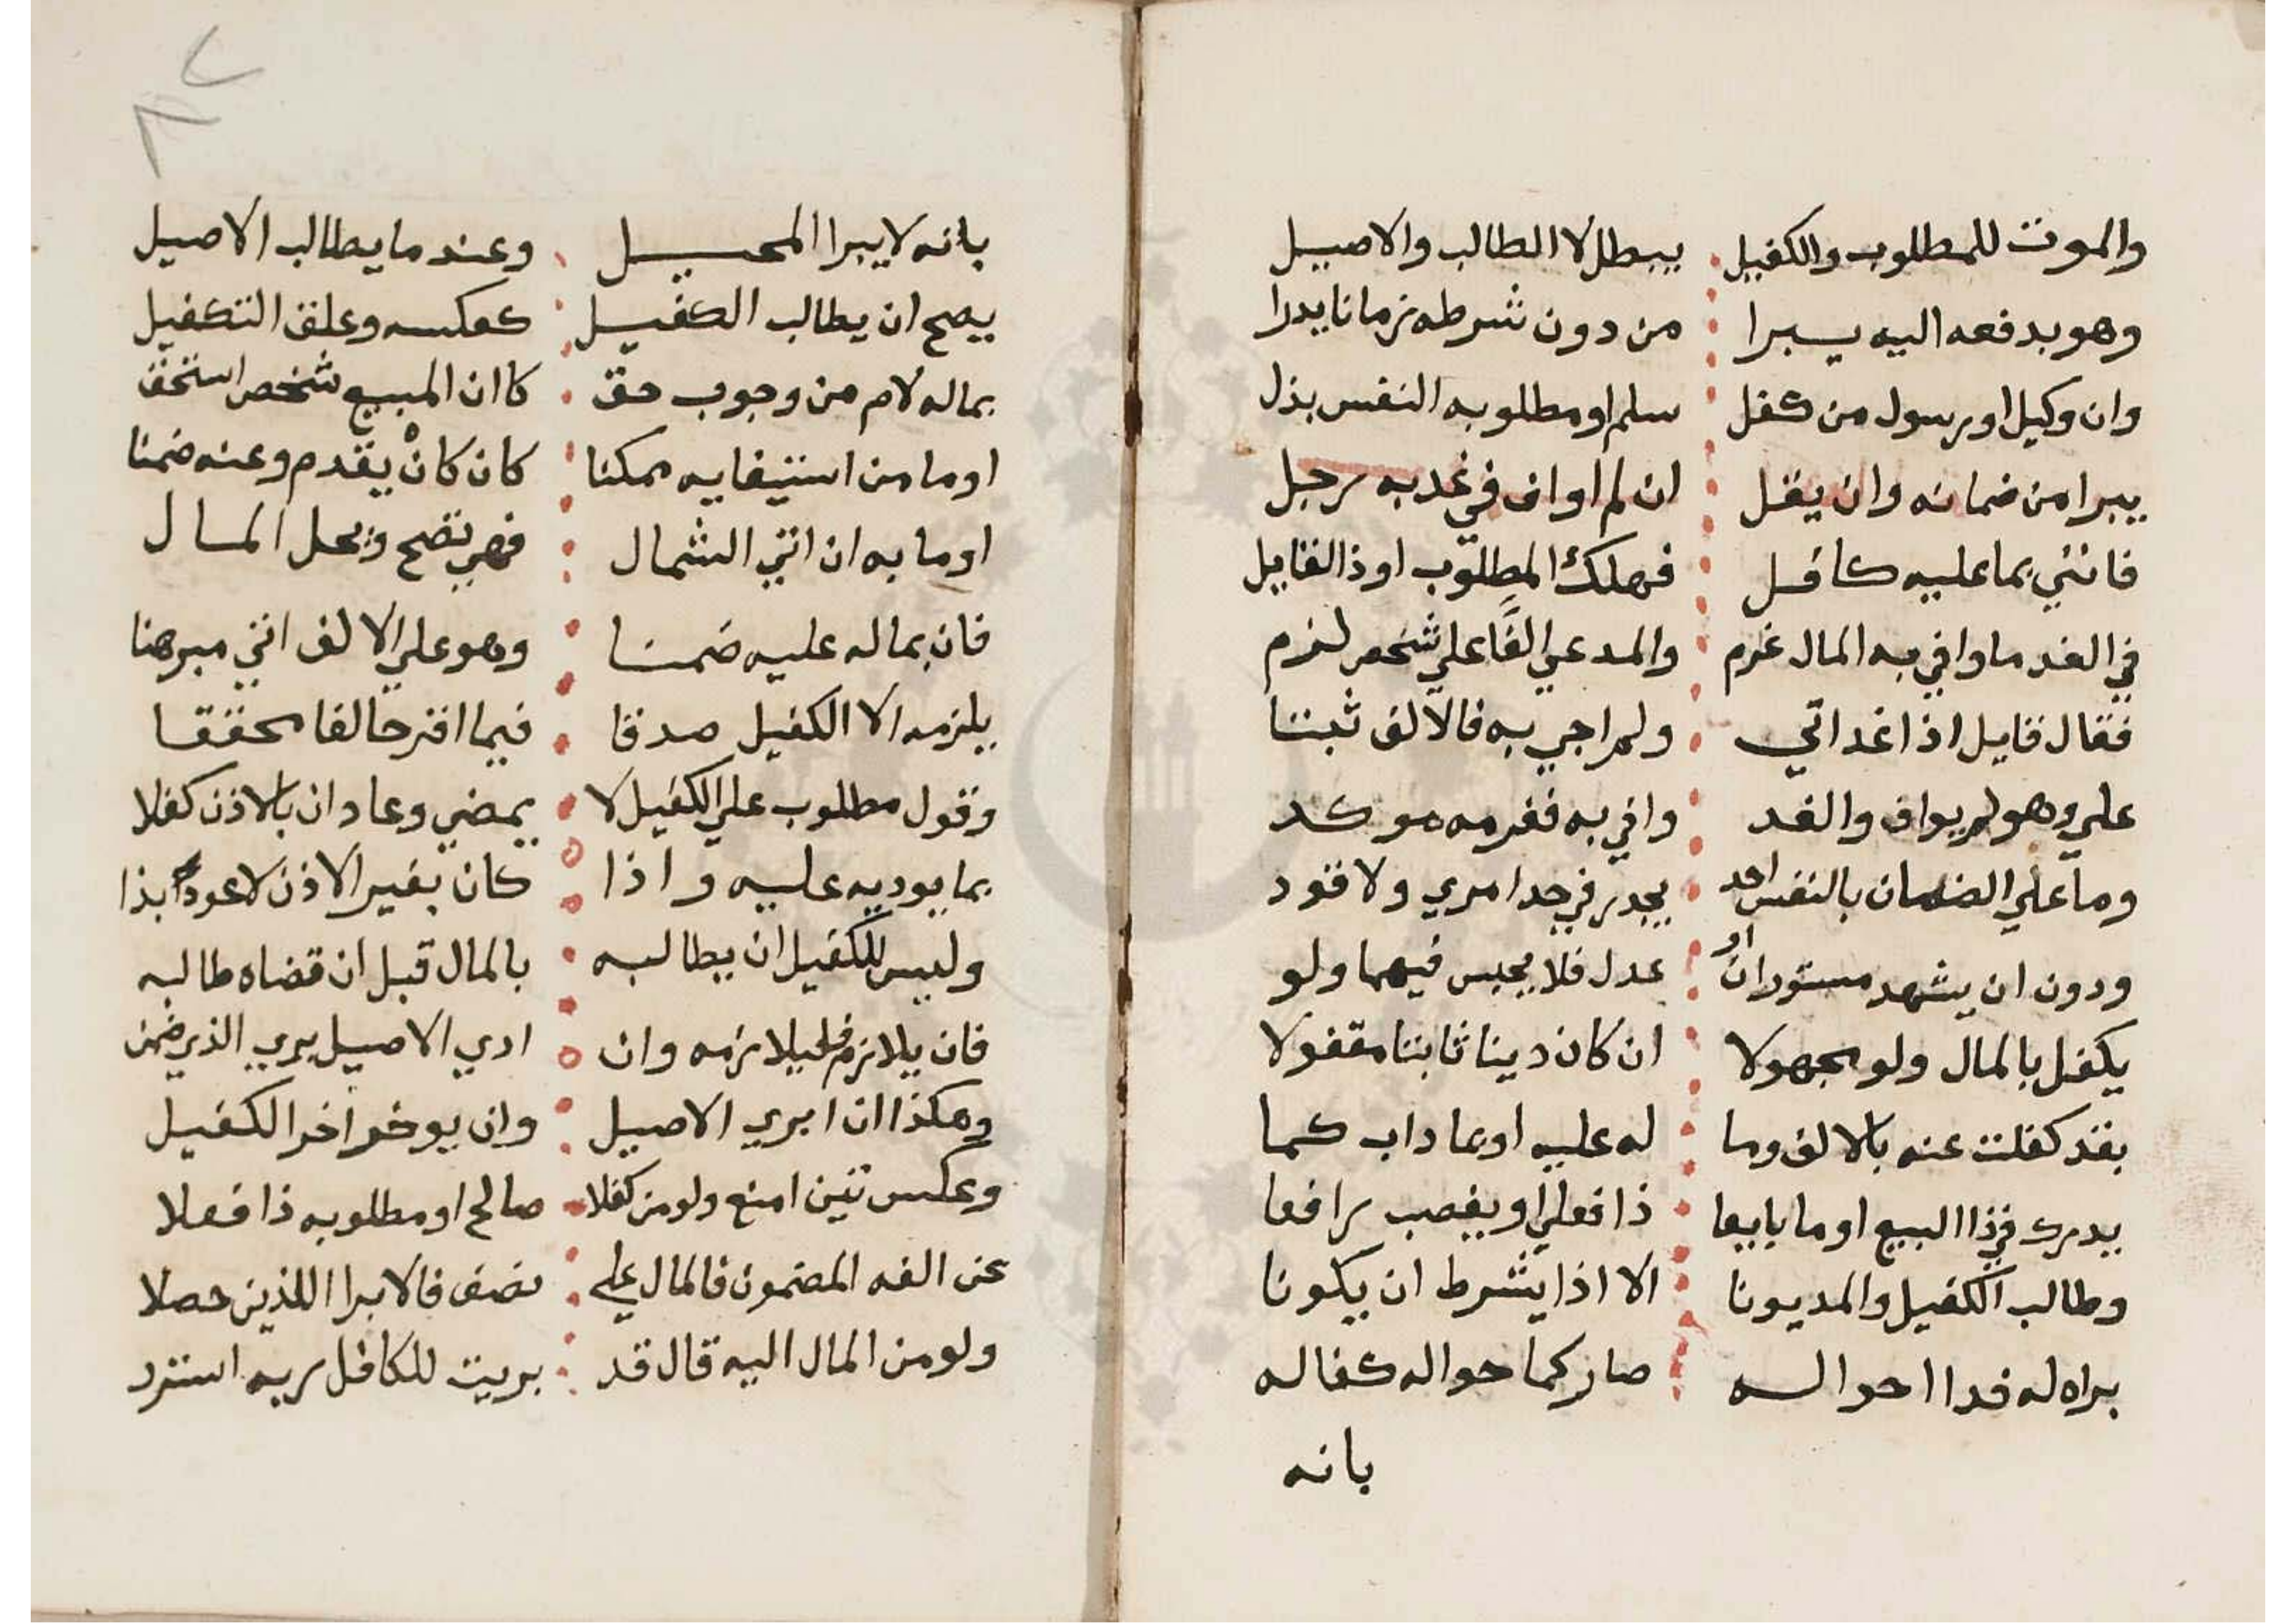 والموت للمطلوب والكفيل يبطل لا الطالب والاصيل
وهو بدفعه اليه يبرا من دون شرطه زمانا يدرا
وان وكيل او رسول من كفل سلم او مطلوبه النفس بذل
يبرا من ضمانه وان يقل ان لم اواف في غد به رجل
فانني بما عليه كافل فهلك المطلوب او ذا القايل
في الغد ما وافي به المال غرم والمدعي الفا علي شخص لزم
فقال قايل اذا غدا اتي ولم اجي به فالالف ثبتا
علي وهو لم يواف والغد وافي به فغرمه موكد
وما علي الضمان بالنفس احد يجبر في حد امري ولا قود
ودون ان يشهد مستوران او عدل فلا يحبس فيهما ولو
يكفل بالمال ولو مجهولا ان كان دينا ثابتا مقفولا
بقد كفلت عنه بالالف وما له عليه او بما داب كما
يدرك في ذا البيع او ما بايعا ذا فعلي او يغصب رافعا
وطالب الكفيل والمديونا الا اذا يشرط ان يكونا
براه له فدا احواله صار كما حواله كفاله
بانه
بانه لا يبرا المحيل وعند ما يطالب الاصيل
يصح ان يطالب الكفيل كعكسه وعلق التكفيل
بماله لام من وجوب حق كاان المبيع شخص استحق
او ما من استيفايه ممكنا كان كان يقدم وعنه ضمنا
او ما به ان اتي الشمال فهي تصح ويحل المال
فان بماله عليه ضمنا وهو علي الالف اتي مبرهنا
يلزمه الا الكفيل صدقا فيما اقر حالفا محققا
وقول مطلوب علي الكفيل لا يمضي وعاد ان بالاذن كفلا
بما يوديه عليه واذا كان بغير الاذن لا عود بذا
وليس للكفيل ان يطالبه بالمال قبل ان قضاه طالبه
فان يلازم فليلازمه وان ادي الاصيل بري الذي ضمن
وهكذا ان ابري الاصيل وان يوخر اخر الكفيل
وعكس تين امنع ولو من كفلا صالح او مطلوبه ذا فعلا
عن الفه المضمون فالمال علي نصف فالابرا اللذين حصلا
ولو من المال اليه قال قد بريت للكافل ربه استرد